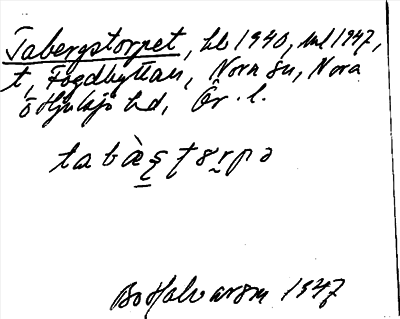 Tabergstorpet, hb 1940, uul 1947,
t, Fogdhyttan, Nora sn, Nora
o Hjulsjö hd, Ör. l.
tabàşţɤrpə
Bo Halvarson 1947